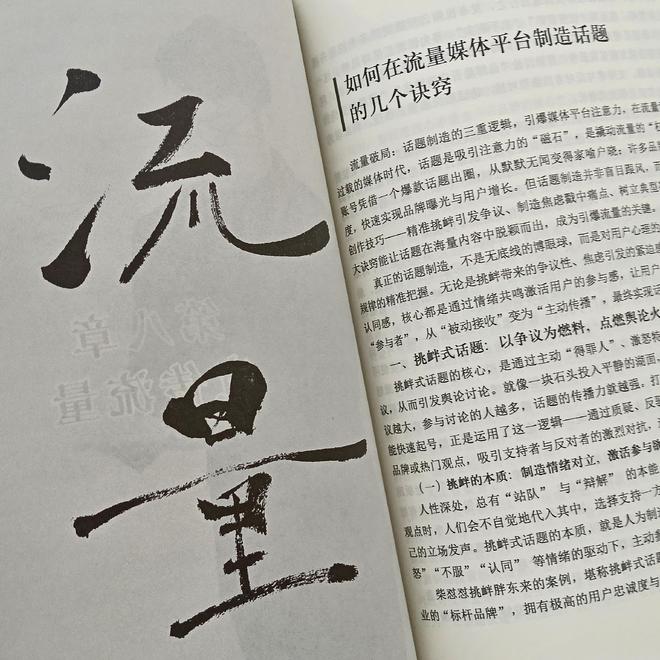 流
量
如何在流量媒体平台制造话题
的几个诀窍
流量破局：话题制造的三重逻辑，引爆媒体平台注意力，在流量
过载的媒体时代，话题是吸引注意力的“磁石”，是撬动流量的“杠
账号凭借一个爆款话题出圈，从默默无闻变得家喻户晓；许多品牌
度，快速实现品牌曝光与用户增长。但话题制造并非盲目跟风，而
创作技巧——精准挑衅引发争议、制造焦虑戳中痛点、树立典型
大诀窍能让话题在海量内容中脱颖而出，成为引爆流量的关键。
真正的话题制造，不是无底线的博眼球，而是对用户心理的
规律的精准把握。无论是挑衅带来的争议性、焦虑引发的紧迫感
认同感，核心都是通过情绪共鸣激活用户的参与感，让用户
“参与者”，从“被动接收”变为“主动传播”，最终实现话
一、挑衅式话题：以争议为燃料，点燃舆论火
挑衅式话题的核心，是通过主动“得罪人”、激怒特
议，从而引发舆论讨论。就像一块石头投入平静的湖面，
议越大，参与讨论的人越多，话题的传播力就越强。打
能快速起号，正是运用了这一逻辑——通过质疑、反驳
品牌或热门观点，吸引支持者与反对者的激烈对抗，
（一）挑衅的本质：制造情绪对立，激活参与
人性深处，总有“站队”与“辩解”的本能
观点时，人们会不自觉地代入其中，选择支持一方
己的立场发声。挑衅式话题的本质，就是人为制造
怒”“不服”“认同”等情绪的驱动下，主动参
柴怼怼挑衅胖东来的案例，堪称挑衅式话题
业的“标杆品牌”，拥有极高的用户忠诚度与
第八章
流量